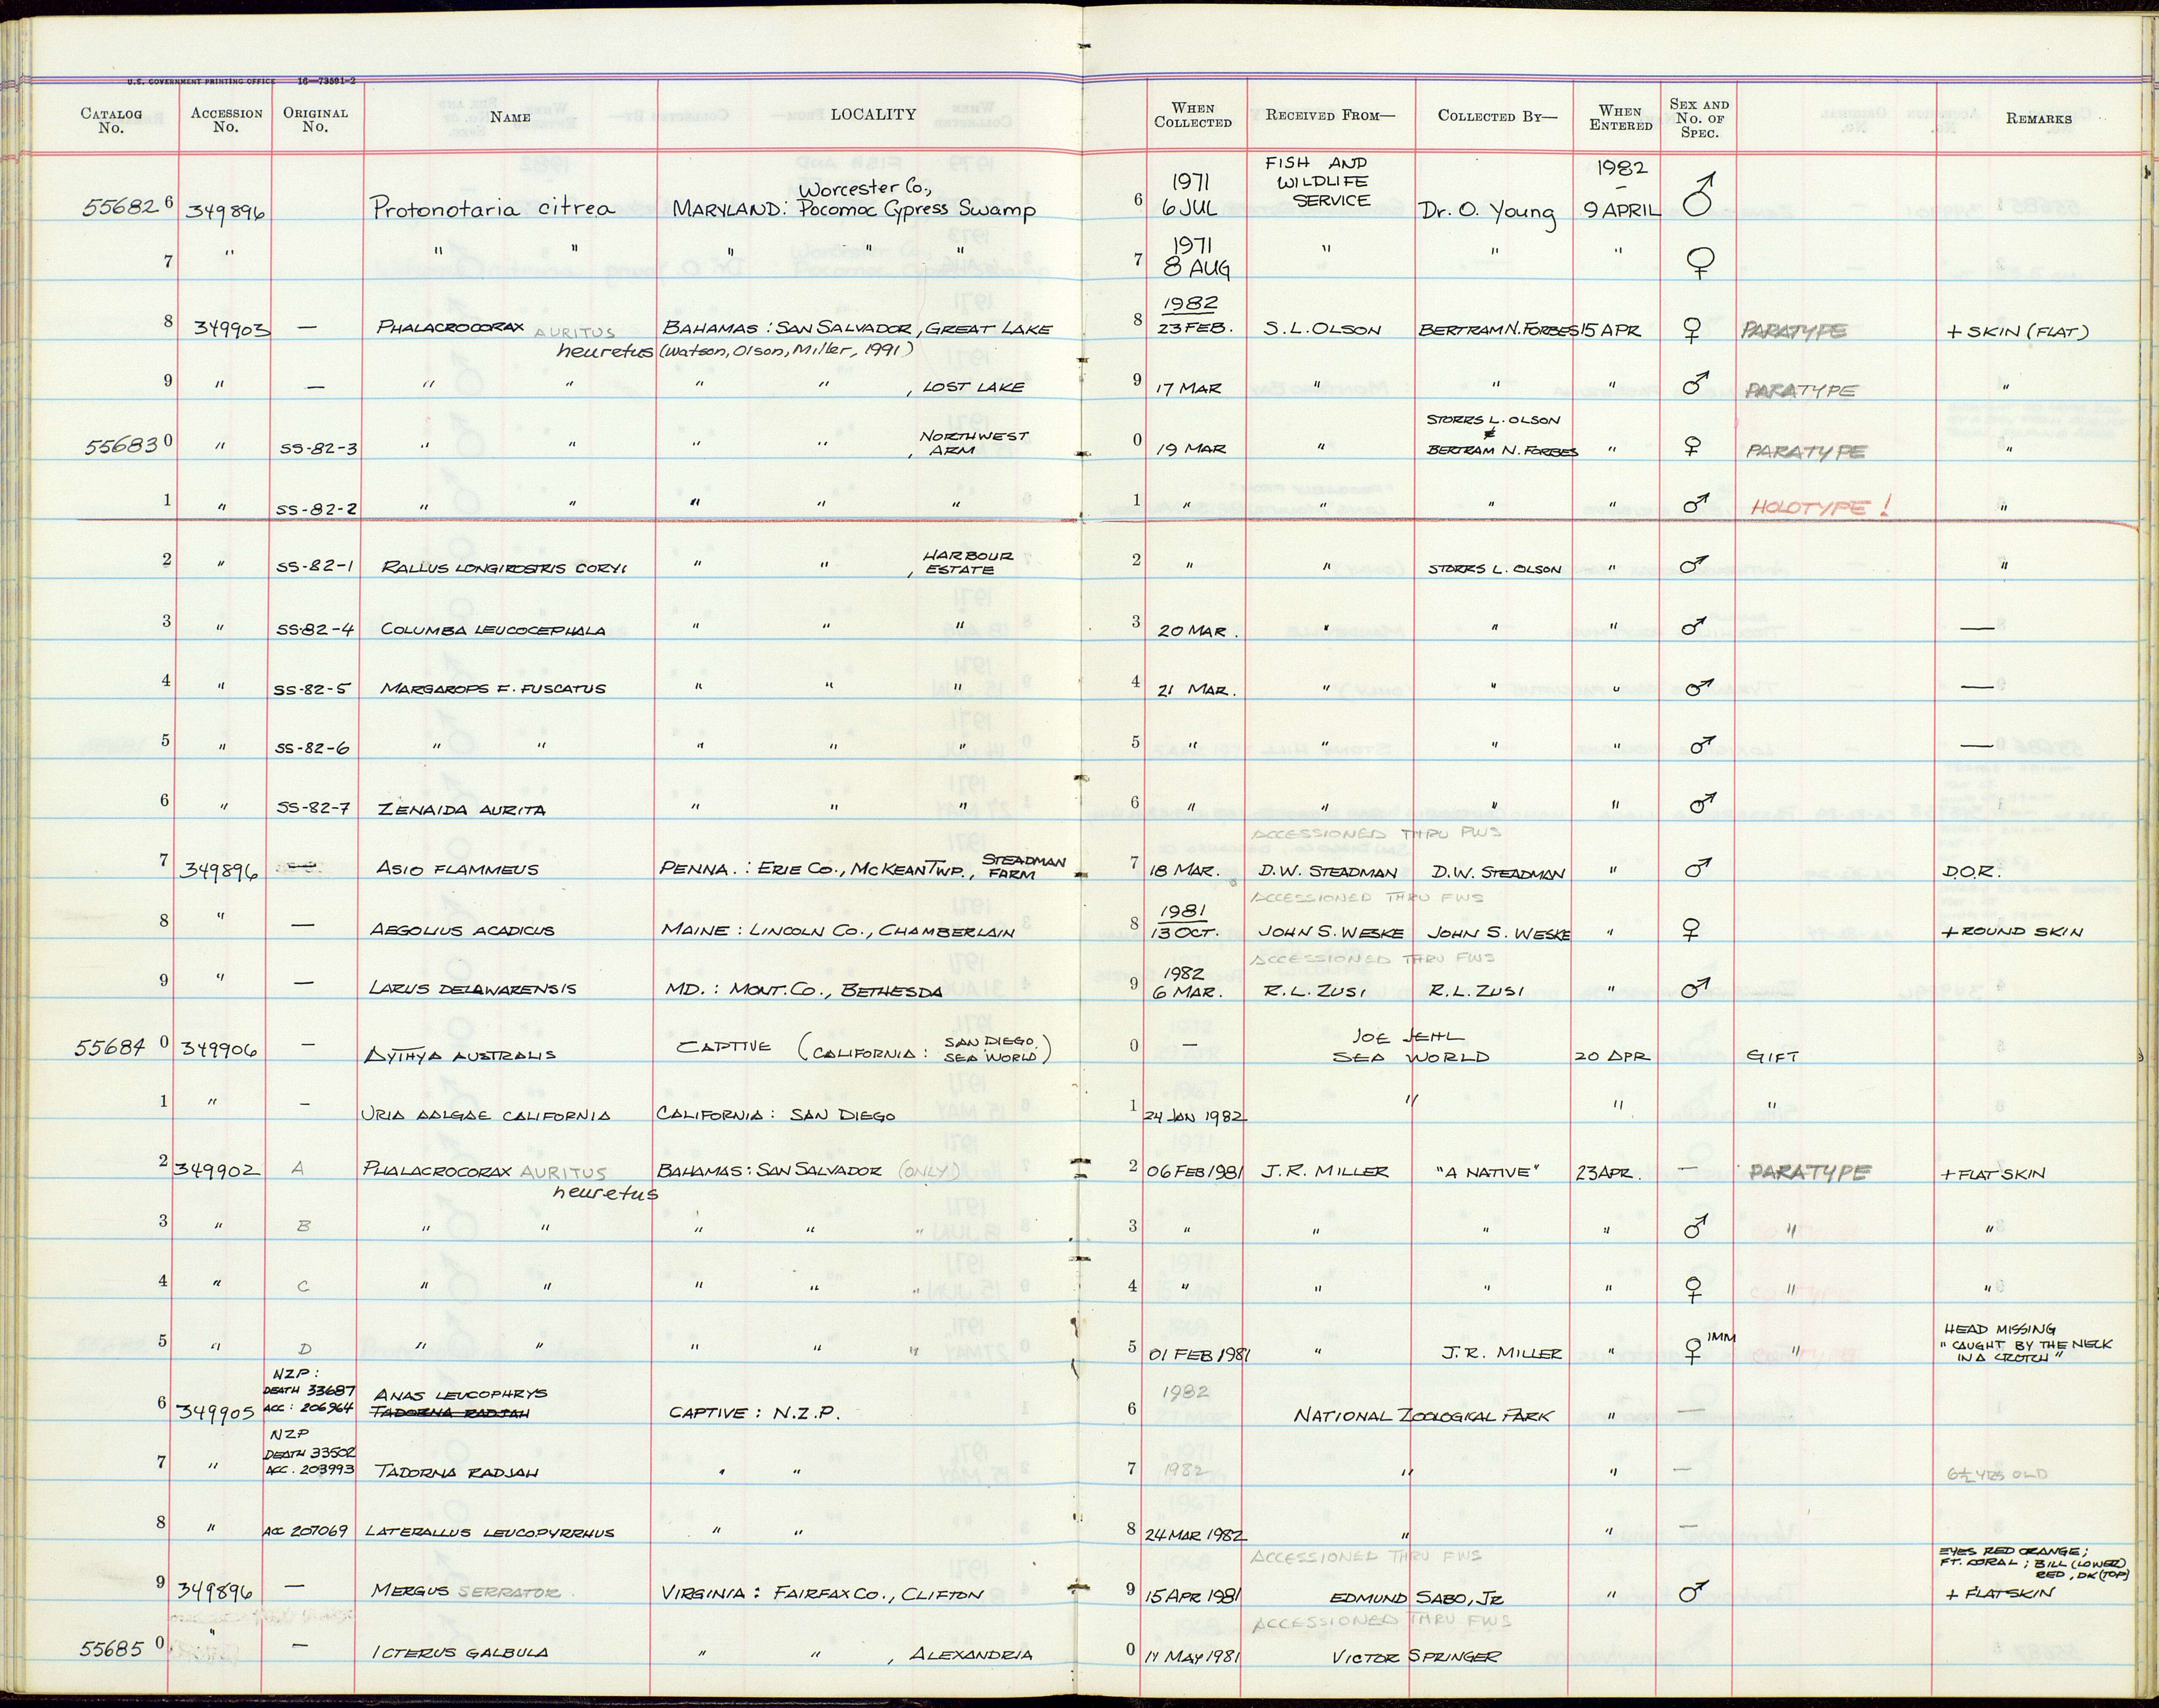 U.S. GOVERNMENT PRINTING OFFICE 16—73591-2
CATALOG No. ACCESSION No. ORIGINAL No. NAME LOCALITY WHEN COLLECTED RECEIVED FROM— COLLECTED BY— WHEN ENTERED SEX AND No. OF SPEC. REMARKS
55682 6 349896 Protonotaria citrea MARYLAND: Worcester Co., Pocomoc Cypress Swamp 6 1971 6 JUL FISH AND WILDLIFE SERVICE Dr. O. Young 1982 – 9 APRIL ♂
7 " " " " " " 7 1971 8 AUG " " " ♀
8 349903 — PHALACROCORAX AURITUS BAHAMAS: SAN SALVADOR, GREAT LAKE 8 1982 23 FEB. S.L. OLSON BERTRAM N. FORBES 15 APR ♀ PARATYPE + SKIN (FLAT)
heuretus (Watson, Olson, Miller, 1991)
9 " — " " " " , LOST LAKE 9 17 MAR " " " ♂ PARATYPE "
55683 0 " SS-82-3 " " " " , NORTHWEST ARM 0 19 MAR " STORRS L. OLSON & BERTRAM N. FORBES " ♀ PARATYPE "
1 " SS-82-2 " " " " " 1 " " " " ♂ HOLOTYPE! "
2 " SS-82-1 RALLUS LONGIROSTRIS CORYI " " , HARBOUR ESTATE 2 " " STORRS L. OLSON " ♂ "
3 " SS-82-4 COLUMBA LEUCOCEPHALA " " " 3 20 MAR. " " " ♂ —
4 " SS-82-5 MARGAROPS F. FUSCATUS " " " 4 21 MAR. " " " ♂ —
5 " SS-82-6 " " " " " 5 " " " " ♂ —
6 " SS-82-7 ZENAIDA AURITA " " " 6 " " " " ♂
ACCESSIONED THRU FWS
7 349896 — ASIO FLAMMEUS PENNA.: ERIE CO., McKEAN TWP., STEADMAN FARM 7 18 MAR. D.W. STEADMAN D.W. STEADMAN " ♂ D.O.R.
ACCESSIONED THRU FWS
8 " — AEGOLIUS ACADICUS MAINE: LINCOLN CO., CHAMBERLAIN 8 1981 13 OCT. JOHN S. WESKE JOHN S. WESKE " ♀ + ROUND SKIN
ACCESSIONED THRU FWS
9 " — LARUS DELAWARENSIS MD.: MONT. CO., BETHESDA 9 1982 6 MAR. R.L. ZUSI R.L. ZUSI " ♂
55684 0 349906 — AYTHYA AUSTRALIS CAPTIVE (CALIFORNIA: SAN DIEGO. SEA WORLD) 0 — JOE JEHL SEA WORLD 20 APR GIFT
1 " — URIA AALGAE CALIFORNIA CALIFORNIA: SAN DIEGO 1 24 JAN 1982 " " "
2 349902 A PHALACROCORAX AURITUS BAHAMAS: SAN SALVADOR (ONLY) 2 06 FEB 1981 J.R. MILLER "A NATIVE" 23 APR. — PARATYPE + FLAT SKIN
heuretus
3 " B " " " " " 3 " " " " ♂ " "
4 " C " " " " " 4 " " " " ♀ " "
5 " D " " " " " 5 01 FEB 1981 " J.R. MILLER " ♀ IMM " HEAD MISSING "CAUGHT BY THE NECK IN A CROTCH"
6 349905 NZP: DEATH 33687 ACC: 206964 ANAS LEUCOPHRYS TADORNA RADJAH CAPTIVE: N.Z.P. 6 1982 NATIONAL ZOOLOGICAL PARK " —
7 " NZP DEATH 33502 ACC. 203993 TADORNA RADJAH " " 7 1982 " " — 6½ YRS OLD
8 " ACC 207069 LATERALLUS LEUCOPYRRHUS " " 8 24 MAR 1982 " " —
ACCESSIONED THRU FWS
9 349896 — MERGUS SERRATOR. VIRGINIA: FAIRFAX CO., CLIFTON 9 15 APR 1981 EDMUND SABO, JR " ♂ EYES RED ORANGE; FT. CORAL; BILL (LOWER) RED, DK (TOP) + FLAT SKIN
ACCESSIONED THRU FWS
55685 0 " — ICTERUS GALBULA " " , ALEXANDRIA 0 MAY 1981 VICTOR SPRINGER